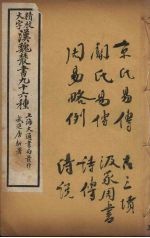 精校
大字
漢魏叢書九十六種
上海大通書局發行
京氏易傳
關氏易傳
周易略例
古三墳
汲冢周書
詩傳
詩說